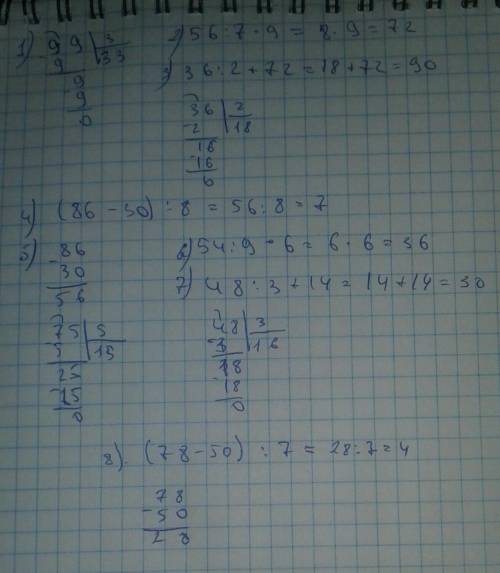 1) 99 | 3
- 9 33
9
9
0
2) 56 : 7 · 9 = 8 · 9 = 72
3) 36 : 2 + 72 = 18 + 72 = 90
36 | 2
- 2 18
16
16
0
4) (86 - 30) : 8 = 56 : 8 = 7
5) - 86
30
56
75 | 5
- 5 15
25
- 25
0
6) 54 : 9 · 6 = 6 · 6 = 36
7) 48 : 3 + 14 = 14 + 14 = 30
48 | 3
- 3 16
18
- 18
0
8). (78 - 50) : 7 = 28 : 7 = 4
78
- 50
28